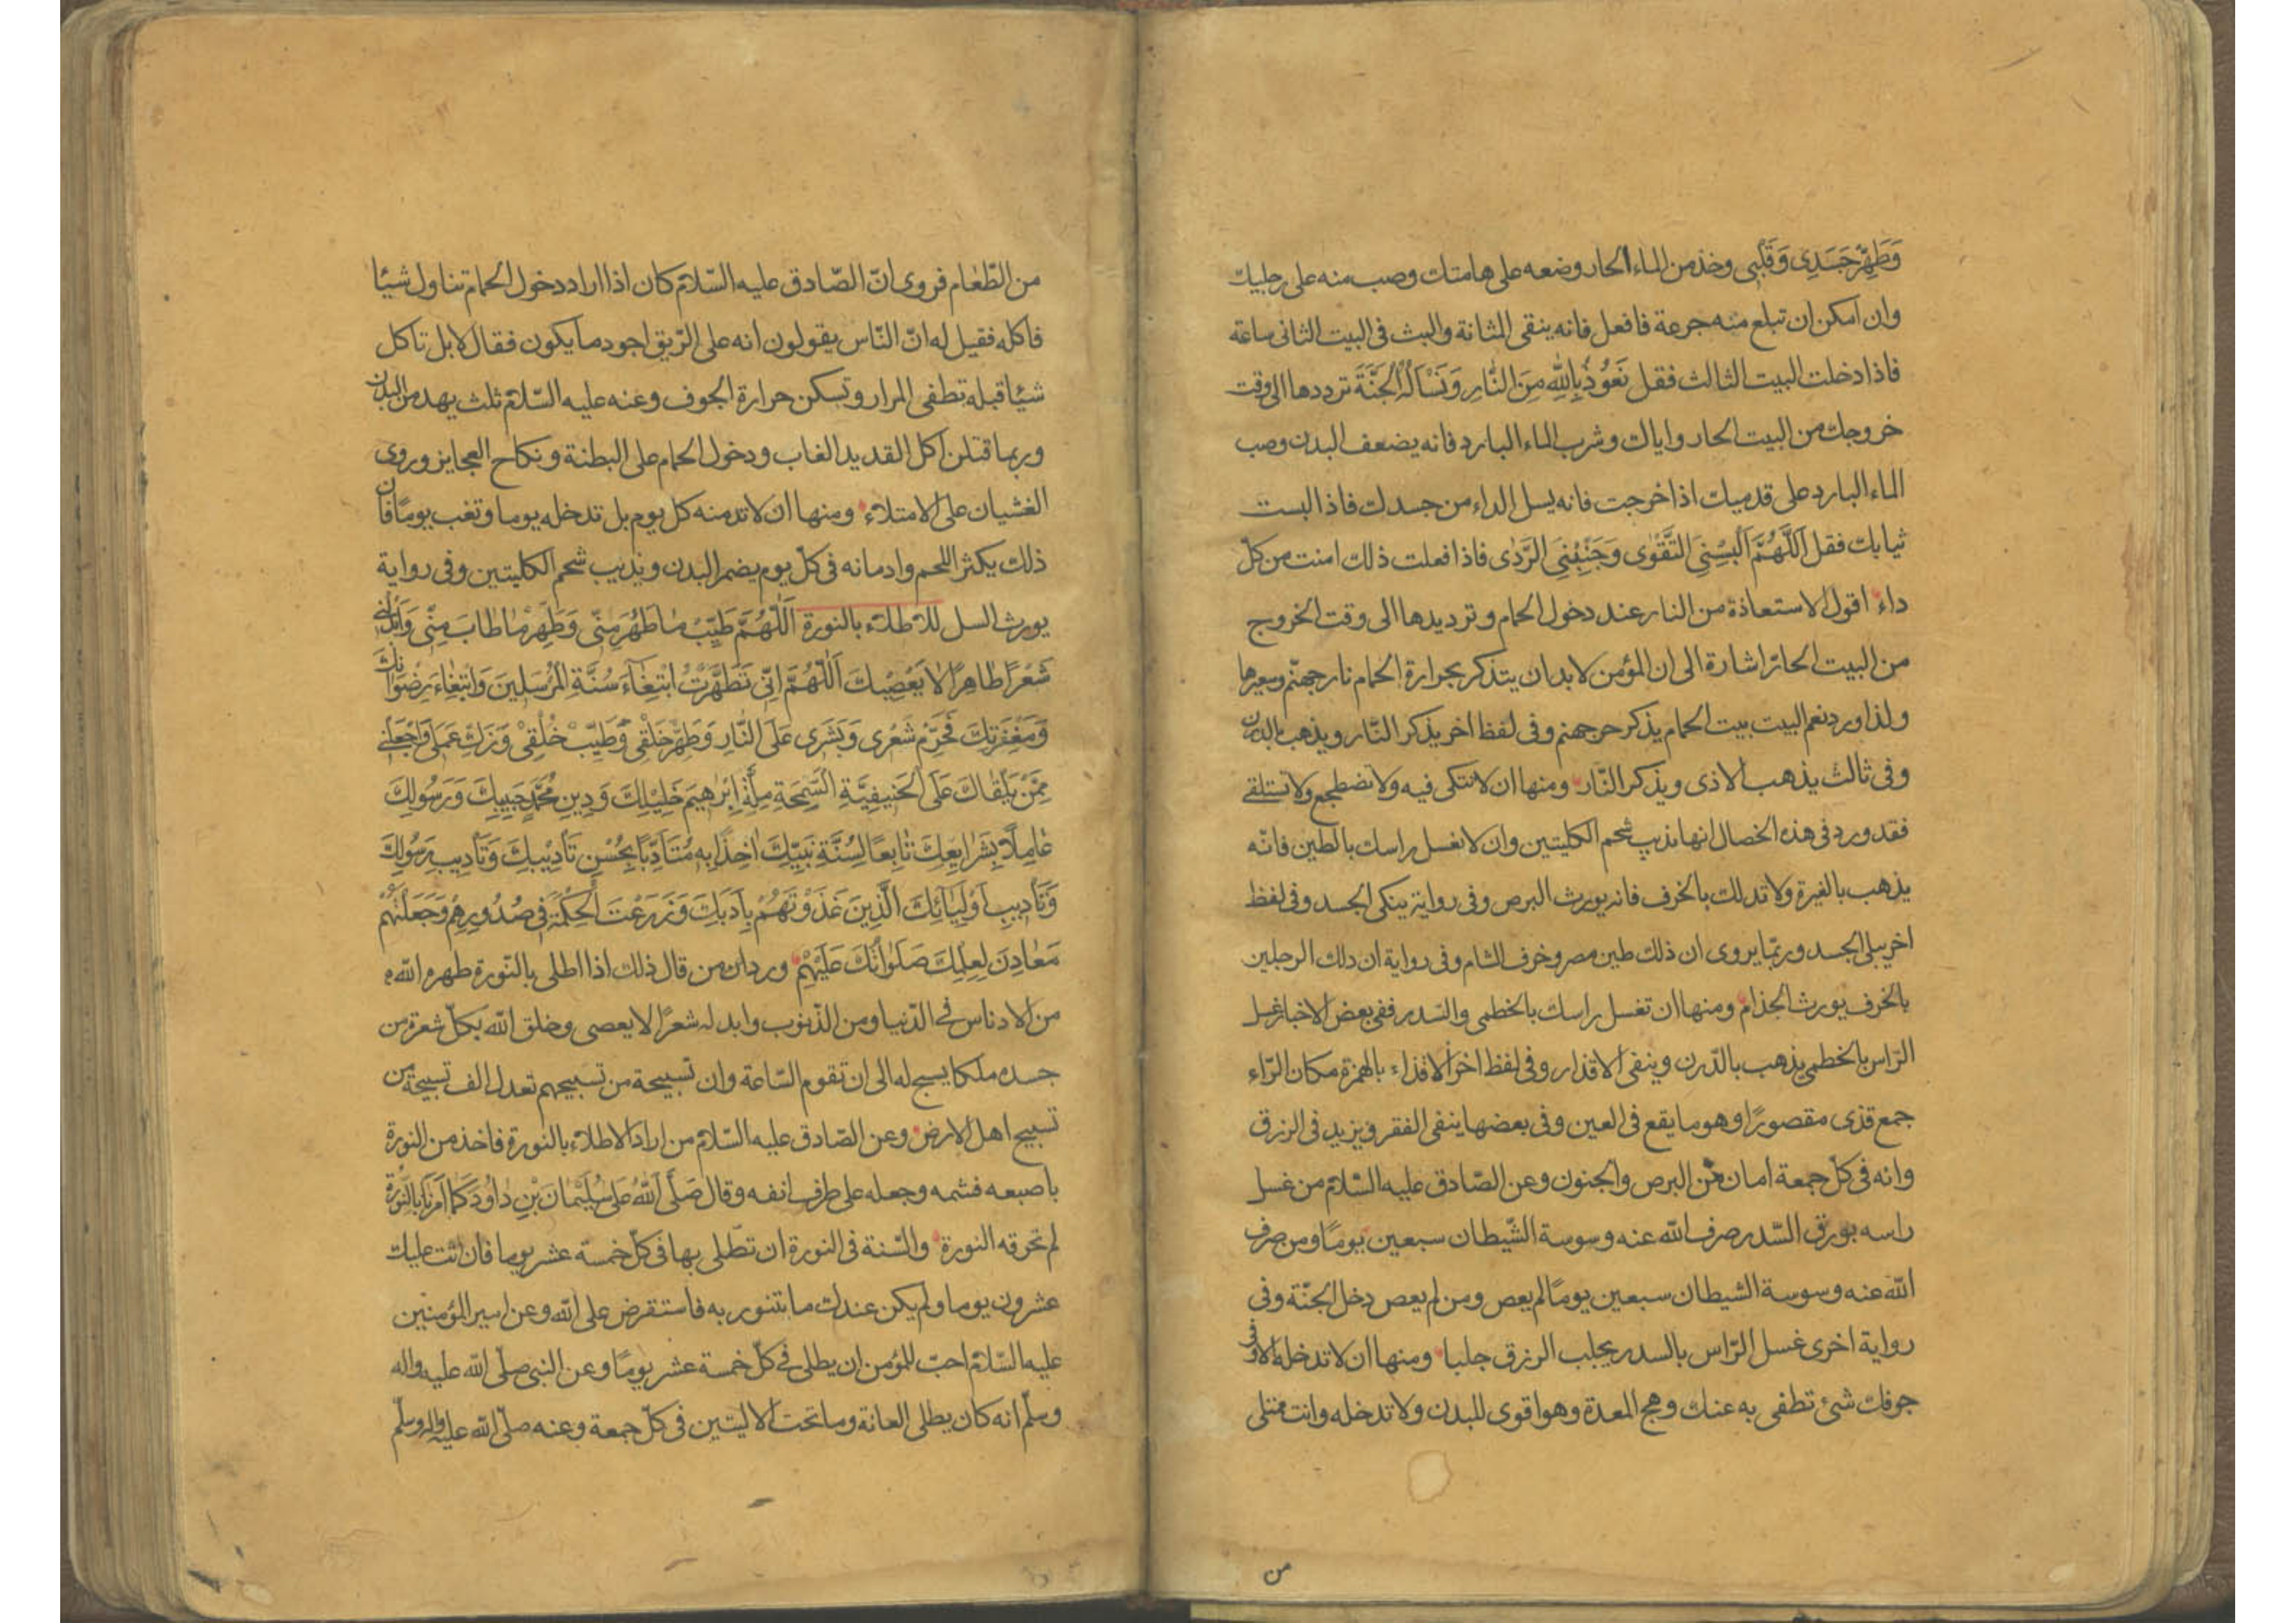 وَطَهِّرْ جَسَدِى وَقَلْبِى وخذ من الماء الحار وضعه على هامتك وصب منه على رجليك
وان امكن ان تبلع منه جرعة فافعل فانه ينقى المثانة والبث فى البيت الثانى ساعة
فاذا دخلت البيت الثالث فقل نَعُوذُ بِاللّٰهِ مِنَ النّٰارِ وَنَسْاَلُهُ الْجَنَّةَ ترددها الى وقت
خروجك من البيت الحار واياك وشرب الماء البارد فانه يضعف البدن وصب
الماء البارد على قدميك اذا خرجت فانه يسل الداء من جسدك فاذا البست
ثيابك فقل اَللّٰهُمَّ اَلْبِسْنِى التَّقْوٰى وَجَنِّبْنِى الرَّدٰى فاذا فعلت ذلك امنت من كلّ
داء اقول الاستعاذة من النار عند دخول الحمام وترديدها الى وقت الخروج
من البيت الحارّ اشارة الى ان المؤمن لابد ان يتذكر بحرارة الحمام نار جهنّم وسعيرها
ولذا ورد نعم البيت بيت الحمام يذكر حر جهنم وفى لفظ اخر يذكر النّار ويذهب بالدرن
وفى ثالث يذهب الاذى ويذكر النّار ومنها ان لا تتكى فيه ولا تضطجع ولا تستلقى
فقد ورد فى هذه الخصال انها تذيب شحم الكليتين وان لا تغسل راسك بالطين فانّه
يذهب بالغيرة ولا تدلك بالخزف فانه يورث البرص وفى رواية ينكى الجسد وفى لفظ
اخر يبلى الجسد وربّما يروى ان ذلك طين مصر وخزف الشام وفى رواية ان دلك الرجلين
بالخزف يورث الجذام ومنها ان تغسل راسك بالخطمى والسّدر ففى بعض الاخبار غسل
الرّاس بالخطمى يذهب بالدّرن وينفى الاقذار وفى لفظ اخر الاقذاء بالهمزة مكان الرّاء
جمع قذى مقصورًا وهو ما يقع فى العين وفى بعضها ينفى الفقر ويزيد فى الرزق
وانه فى كلّ جمعة امان من البرص والجنون وعن الصّادق عليه السّلام من غسل
راسه بورق السّدر صرف الله عنه وسوسة الشّيطان سبعين يومًا ومن صرف
الله عنه وسوسة الشيطان سبعين يومًا لم يعص ومن لم يعص دخل الجنّة وفى
رواية اخرى غسل الرّاس بالسدر يجلب الرزق جلبا ومنها ان لا تدخله الا وفى
جوفك شئ تطفى به عنك وهج المعدة وهو اقوى للبدن ولا تدخله وانت ممتلى
من
من الطّعام فروى انّ الصّادق عليه السّلام كان اذا اراد دخول الحمام تناول شيئا
فاكله فقيل له انّ النّاس يقولون انه على الرّيق اجود ما يكون فقال لا بل تاكل
شيئا قبله تطفى المرار وتسكن حرارة الجوف وعنه عليه السّلام ثلث يهدمن البدن
وربما قتلن اكل القديد الغاب ودخول الحمام على البطنة ونكاح العجايز وروى
الغشيان على الامتلاء ومنها ان لا تدمنه كل يوم بل تدخله يوما وتغب يومًا فان
ذلك يكثر اللحم وادمانه فى كلّ يوم يضمر البدن ويذيب شحم الكليتين وفى رواية
يورث السل للاطلاء بالنورة اَللّٰهُمَّ طَيِّبْ مٰا طَهُرَ مِنّى وَطَهِّرْ مٰا طٰابَ مِنّى وَاَبْدِلْنى
شَعْرًا طٰاهِرًا لاٰ يَعْصِيكَ اَللّٰهُمَّ اِنّى تَطَهَّرْتُ ابْتِغٰاءَ سُنَّةِ الْمُرْسَلِينَ وَابْتِغٰاءَ رِضْوٰانِكَ
وَمَغْفِرَتِكَ فَحَرِّمْ شَعْرى وَبَشَرى عَلَى النّٰارِ وَطَهِّرْ خَلْقى وَطَيِّبْ خُلْقِى وَزَكِّ عَمَلى وَاجْعَلْنى
مِمَّنْ يَلْقٰاكَ عَلَى الْحَنِيفِيَّةِ السَّمْحَةِ مِلَّةِ اِبْرٰهِيمَ خَلِيلِكَ وَدِينِ مُحَمَّدٍ حَبِيبِكَ وَرَسُولِكَ
عٰامِلًا بِشَرٰايِعِكَ تٰابِعًا لِسُنَّةِ نَبِيِّكَ اٰخِذًا بِهِ مُتَأَدِّبًا بِحُسْنِ تَأْدِيبِكَ وَتَأْدِيبِ رَسُولِكَ
وَتَأْدِيبِ اَوْلِيٰائِكَ الَّذِينَ غَذَوْتَهُمْ بِاَدَبِكَ وَزَرَعْتَ الْحِكْمَةَ فى صُدُورِهِمْ وَجَعَلْتَهُمْ
مَعٰادِنَ لِعِلْمِكَ صَلَوٰاتُكَ عَلَيْهِمْ ورد ان من قال ذلك اذا اطلى بالنّورة طهره الله
من الادناس فى الدّنيا ومن الذّنوب وابدله شعرًا لا يعصى وخلق الله بكلّ شعرة من
جسده ملكا يسبح له الى ان تقوم السّاعة وان تسبيحة من تسبيحهم تعدل الف تسبيحة من
تسبيح اهل الارض وعن الصّادق عليه السّلام من اراد الاطلاء بالنورة فاخذ من النورة
باصبعه فشمه وجعله على طرف انفه وقال صَلَّى اللهُ عَلى سُلَيْمٰانَ بْنِ دٰاوُدَ كَمٰا اَمَرَنٰا بِالنُّورَةِ
لم تحرقه النورة والسّنة فى النورة ان تطّلى بها فى كلّ خمسة عشر يوما فان اتت عليك
عشرون يوما ولم يكن عندك ما يتنور به فاستقرض على الله وعن امير المؤمنين
عليه السّلام احبّ للمؤمن ان يطلى فى كلّ خمسة عشر يومًا وعن النبى صلّى الله عليه واله
وسلّم انه كان يطلى العانة وما تحت الاليتين فى كلّ جمعة وعنه صلّى الله عليه واله وسلّم